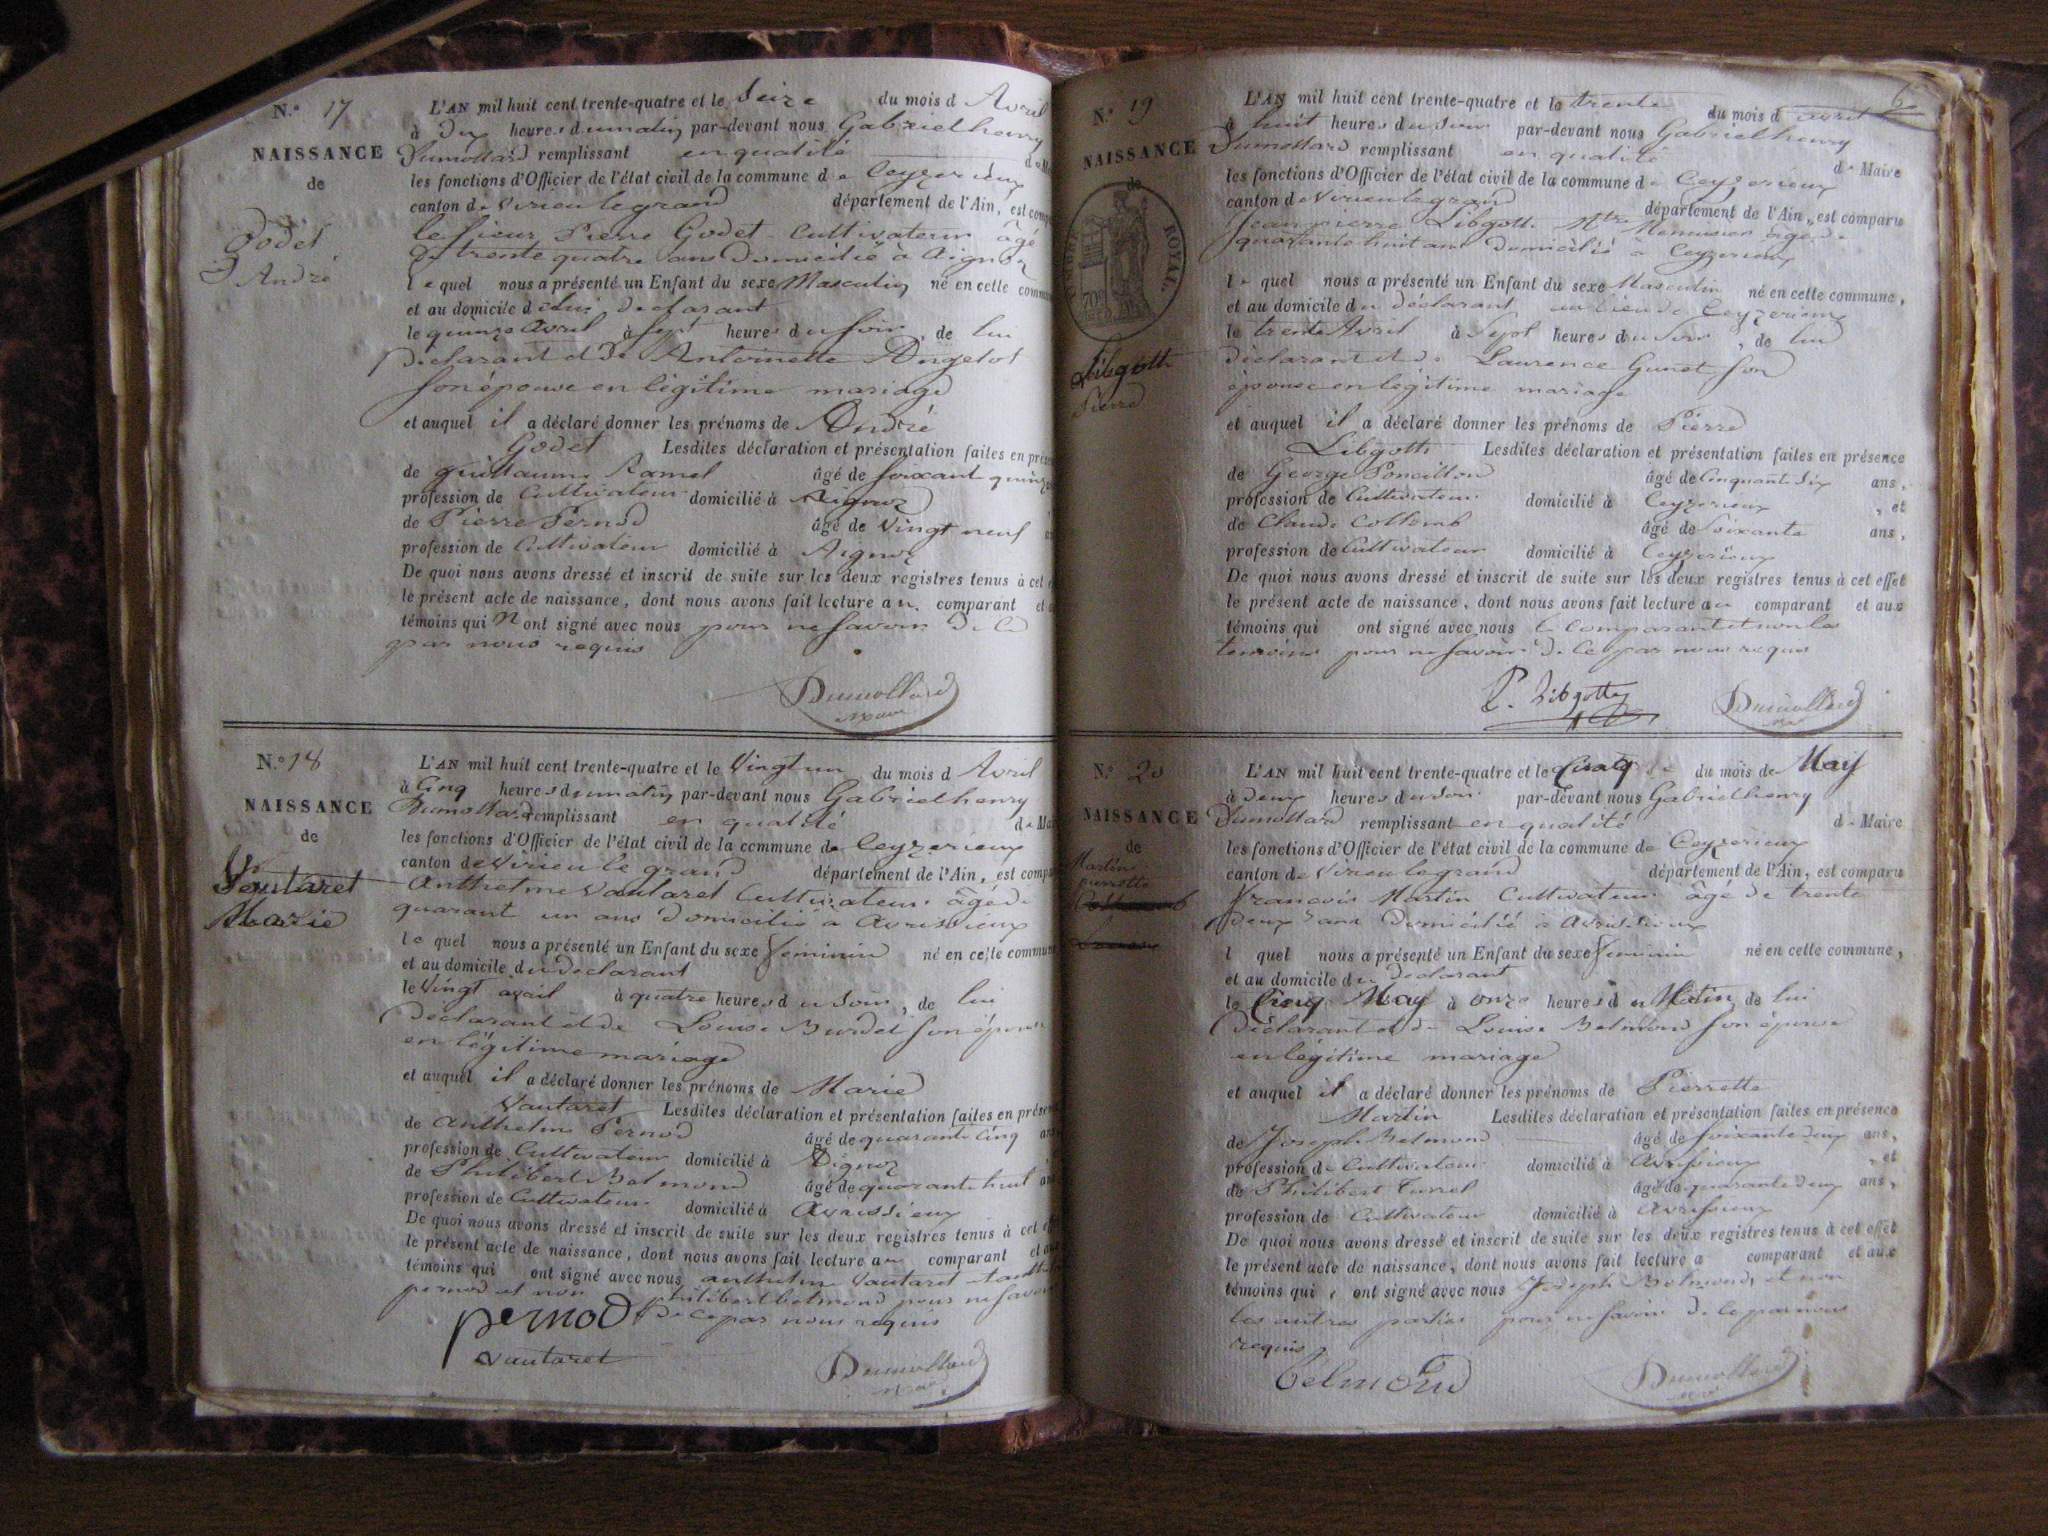 N.° 17
NAISSANCE
de
Godet
André
L'AN mil huit cent trente-quatre et le Seize du mois d Avril
à Dix heures du matin par-devant nous Gabriel henry
Dumollard remplissant en qualité de Ma
les fonctions d'Officier de l'état civil de la commune de Ceyzerieux
canton de Virieu le grand département de l'Ain, est compa
le sieur Pierre Godet Cultivateur âgé
de trente quatre ans Domicilié à Aignoz
le quel nous a présenté un Enfant du sexe Masculin né en cette commune
et au domicile d declarant
le quinze Avril à Sept heures du soir, de lui
Declarant et de Antoinette Angelot
son épouse en légitime mariage
et auquel il a déclaré donner les prénoms de André
Godet Lesdites déclaration et présentation faites en prése
de guillaume Ramel âgé de soixant quinze
profession de Cultivateur domicilié à Aignoz
de Pierre Pernod âgé de vingt neuf
profession de Cultivateur domicilié à Aignoz
De quoi nous avons dressé et inscrit de suite sur les deux registres tenus à cet
le présent acte de naissance, dont nous avons fait lecture au comparant et
témoins qui n ont signé avec nous pour ne savoir De ce
par nous requis
Dumollard
maire
N.° 18
NAISSANCE
de
Vautaret
Marie
L'AN mil huit cent trente-quatre et le Vingt un du mois d Avril
à Cinq heures du matin par-devant nous Gabriel henry
Dumollard remplissant en qualité de Mai
les fonctions d'Officier de l'état civil de la commune de Ceyzerieux
canton de Virieu le grand département de l'Ain, est compa
Anthelme Vautaret Cultivateur âgé de
quarant un ans domicilié à avrissieux
le quel nous a présenté un Enfant du sexe feminin né en cette commune
et au domicile du declarant
le Vingt avril à quatre heures du soir, de lui
Declarant et de Louise Burdet son épouse
en légitime mariage
et auquel il a déclaré donner les prénoms de Marie
Vautaret Lesdites déclaration et présentation faites en prése
de anthelme Pernod âgé de quarante Cinq ans
profession de Cultivateur domicilié à Aignoz
de Philibert Belmond âgé de quarante huit ans
profession de Cultivateur domicilié à Avrissieux
De quoi nous avons dressé et inscrit de suite sur les deux registres tenus à cet
le présent acte de naissance, dont nous avons fait lecture au comparant et aux
témoins qui ont signé avec nous anthelme Vautaret
pernod et non philibert belmond pour ne savoir
de ce par nous requis
pernod
vautaret
Dumollard
maire
6
N.° 19
NAISSANCE
de
TIMBRE ROYAL
Libgoth
Pierre
L'AN mil huit cent trente-quatre et le trente du mois d avril
à huit heures du soir par-devant nous Gabriel henry
Dumollard remplissant en qualité de Maire
les fonctions d'Officier de l'état civil de la commune de Ceyzerieux
canton de Virieu le grand département de l'Ain, est comparu
Jean pierre Libgoth Mtre Menuisier âgé de
quarante huit ans Domicilié à Ceyzerieux
le quel nous a présenté un Enfant du sexe Masculin né en cette commune,
et au domicile du déclarant au lieu de Ceyzerieux
le trente Avril à Sept heures du soir, de lui
déclarant et de Laurence Gunet son
épouse en légitime mariage
et auquel il a déclaré donner les prénoms de Pierre
Libgoth Lesdites déclaration et présentation faites en présence
de George Poncillon âgé de Cinquant Six ans,
profession de Cultivateur domicilié à Ceyzerieux, et
de Claude Collomb âgé de Soixante ans,
profession de Cultivateur domicilié à Ceyzerieux
De quoi nous avons dressé et inscrit de suite sur les deux registres tenus à cet effet
le présent acte de naissance, dont nous avons fait lecture au comparant et aux
témoins qui ont signé avec nous le comparant et non les
temoins pour ne savoir De ce par nous requis
P. Libgoth
Dumollard
N.° 20
NAISSANCE
de
Martin
pierrette
L'AN mil huit cent trente-quatre et le Cinq du mois de May
à deux heures du soir par-devant nous Gabriel henry
Dumollard remplissant en qualité de Maire
les fonctions d'Officier de l'état civil de la commune de Ceyzerieux
canton de Virieu le grand département de l'Ain, est comparu
francois Martin Cultivateur âgé de trente
deux ans Domicilié à avrissieux
l quel nous a présenté un Enfant du sexe feminin né en cette commune,
et au domicile du Declarant
le Cinq May à onze heures du Matin de lui
Déclarant et de Louise Belmond son épouse
en légitime mariage
et auquel il a déclaré donner les prénoms de Pierrette
Martin Lesdites déclaration et présentation faites en présence
de Joseph Belmond âgé de soixante deux ans,
profession de Cultivateur domicilié à avrissieux, et
de Philibert Turrel âgé de quarante deux ans,
profession de Cultivateur domicilié à avrissieux
De quoi nous avons dressé et inscrit de suite sur les deux registres tenus à cet effet
le présent acte de naissance, dont nous avons fait lecture a comparant et aux
témoins qui ont signé avec nous Joseph Belmond, et non
les autres parties pour ne savoir De ce par nous
requis.
belmond
Dumollard